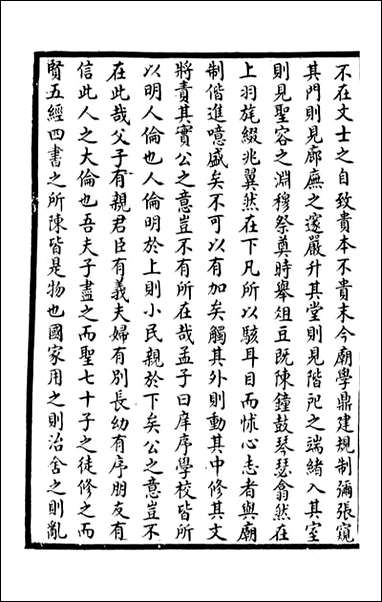 不在文士之自致貴本不貴末今廟學鼎建規制彌張窺
其門則見廊廡之邃嚴升其堂則見階戺之端緒入其室
則見聖容之淵穆祭奠時舉俎豆既陳鐘鼓琴瑟翕然在
上羽旄綴兆翼然在下凡所以駭耳目而怵心志者與廟
制偕進噫盛矣不可以有加矣觸其外則動其中修其文
將責其實公之意豈不有所在哉孟子曰庠序學校皆所
以明人倫也人倫明於上則小民親於下矣公之意豈不
在此哉父子有親君臣有義夫婦有別長幼有序朋友有
信此人之大倫也吾夫子盡之而聖七十子之徒修之而
賢五經四書之所陳皆是物也國家用之則治舍之則亂